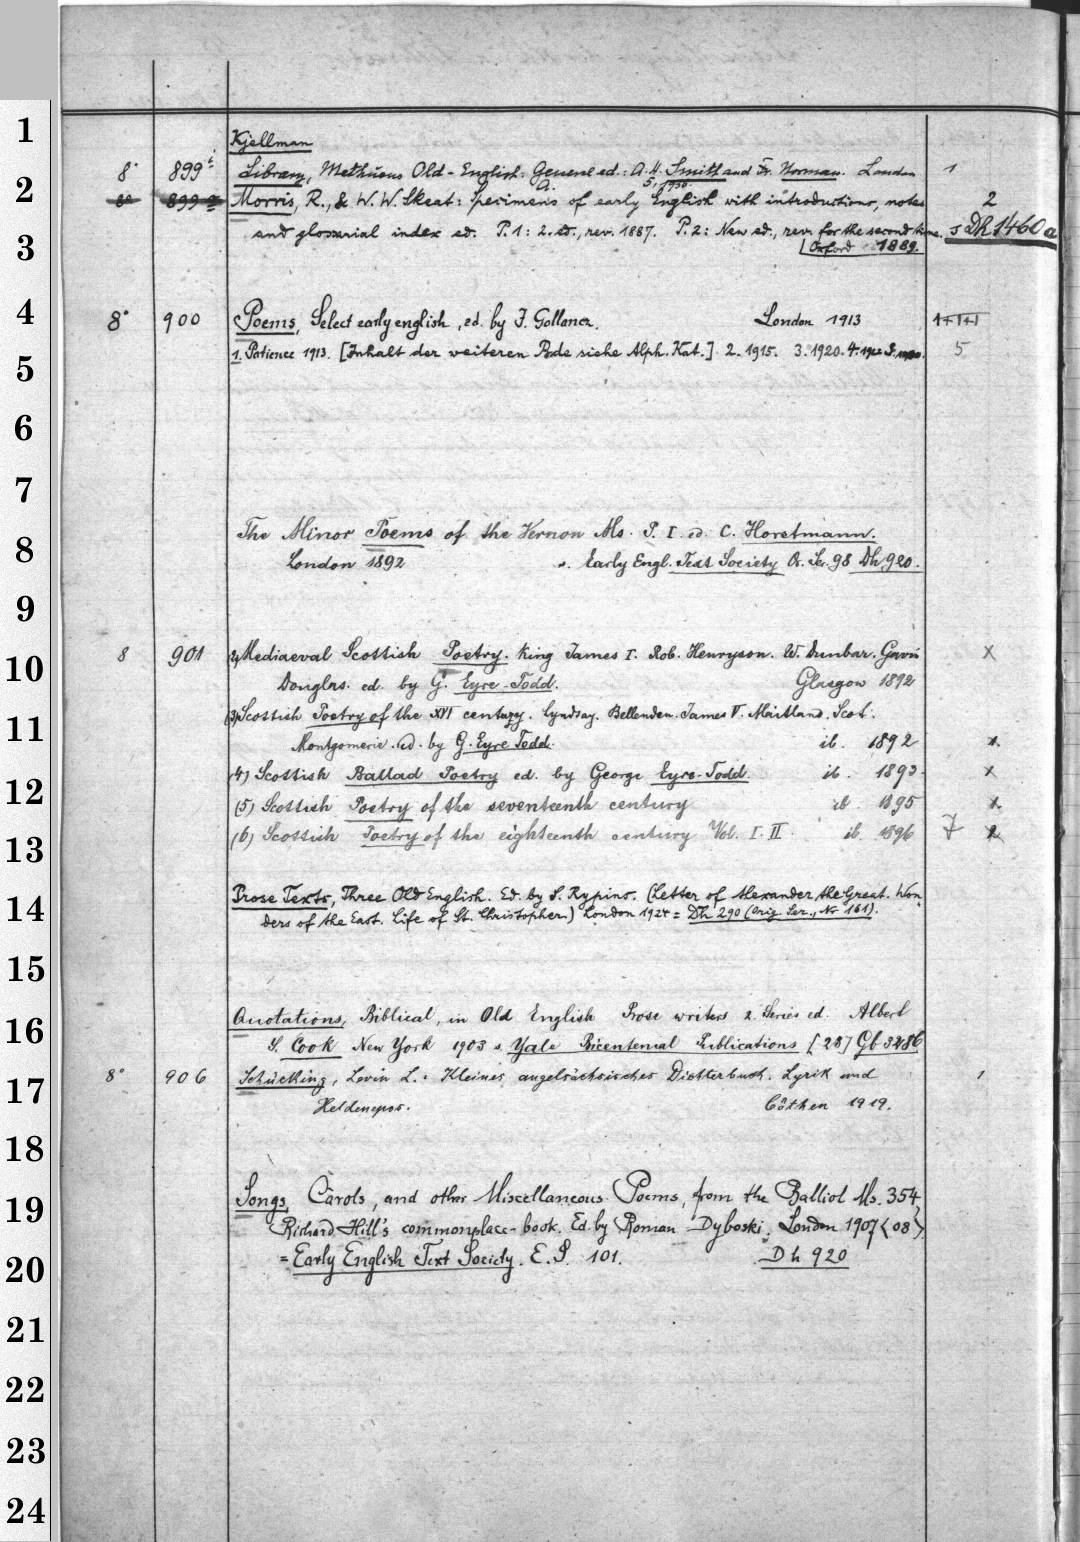 Kjellman
8° 899i Library, Methuens Old-English. General ed.: A. H. Smith and Fr. Norman. London 1
5. 1950.
Morris, R., & W. W. Skeat: Specimens of early English with introductions, notes 2
and glossarial index ed. P. 1: 2. ed., rev. 1887. P. 2: New ed., rev. for the second time. s Dh 1460 a
Oxford 1889.
8° 900 Poems, Select early english, ed. by I. Gollancz. London 1913
1. Patience 1913. [Inhalt der weiteren Bde siehe Alph. Kat.] 2. 1915. 3. 1920. 4. 1922 5
The Minor Poems of the Vernon Ms. P. I. ed. C. Horstmann.
London 1892 s. Early Engl. Text Society Or. Ser. 98 Dh 920.
8 901 (2) Mediaeval Scottish Poetry. King James I. Rob. Henryson. W. Dunbar. Gavin x
Douglas. ed. by G. Eyre-Todd. Glasgow 1892
(3) Scottish Poetry of the XVI century. Lyndsay. Bellenden. James V. Maitland. Scot.
Montgomerie. ed. by G. Eyre Todd. ib. 1892 x.
(4) Scottish Ballad Poetry ed. by George Eyre-Todd. ib. 1893. x
(5) Scottish Poetry of the seventeenth century ib 1895 x.
(6) Scottish Poetry of the eighteenth century Vol. I. II. ib. 1896 7 2
Prose Texts, Three Old English. Ed. by S. Rypins. (Letter of Alexander the Great. Won-
ders of the East. Life of St. Christopher.) London 1924 = Dh 290 (Orig. Ser., Nr 161).
Quotations, Biblical, in Old English Prose writers 2. Series ed. Albert
S. Cook New York 1903 s. Yale Bicentenial Publications [23] Gb 3286
8° 906 Schücking, Levin L.: Kleines angelsächsisches Dichterbuch. Lyrik und 1
Heldenepos. Cöthen 1919.
Songs, Carols, and other Miscellaneous Poems, from the Balliol Ms. 354,
Richard Hill's commonplace-book. Ed. by Roman Dyboski. London 1907 <08>
= Early English Text Society. E. S. 101. Dh 920
1
2
3
4
5
6
7
8
9
10
11
12
13
14
15
16
17
18
19
20
21
22
23
24